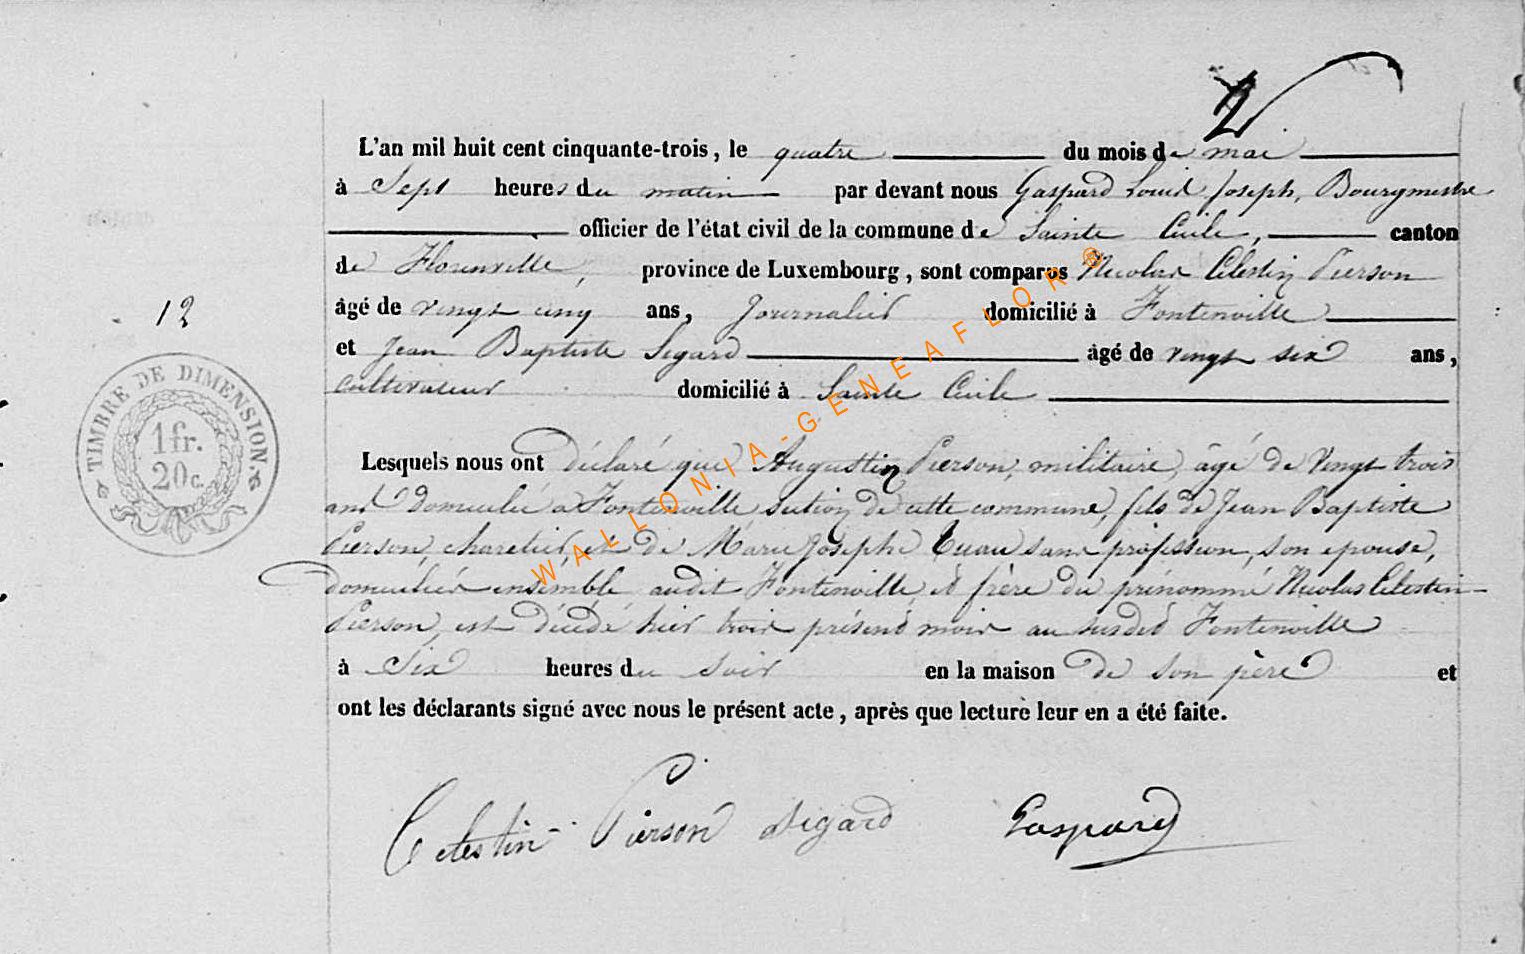 2
L'an mil huit cent cinquante-trois, le quatre du mois de mai
à Sept heures du matin par devant nous Gaspard Louis Joseph, Bourgmestre
officier de l'état civil de la commune de Sainte Cécile, canton
de Florenville, province de Luxembourg, sont comparus Nicolas Célestin Pierson
âgé de vingt cinq ans, Journalier domicilié à Fontenoille
12
et Jean Baptiste Sigard âgé de vingt six ans,
cultivateur domicilié à Sainte Cécile
TIMBRE DE DIMENSION.
1 fr.
20 c.
Lesquels nous ont déclaré que Augustin Pierson, militaire, âgé de vingt trois
ans domicilié à Fontenoille section de cette commune, fils de Jean Baptiste
Pierson, charetier, et de Marie Joseph sans profession, son epouse,
domiciliés ensemble audit Fontenoille, et frère du prénommé Nicolas Célestin
Pierson, est décédé hier trois présent mois au susdit Fontenoille
à Six heures du soir en la maison de son père et
ont les déclarants signé avec nous le présent acte, après que lecture leur en a été faite.
Celestin Pierson Sigard Gaspard
WALLONIA-GENEAFLOR ®